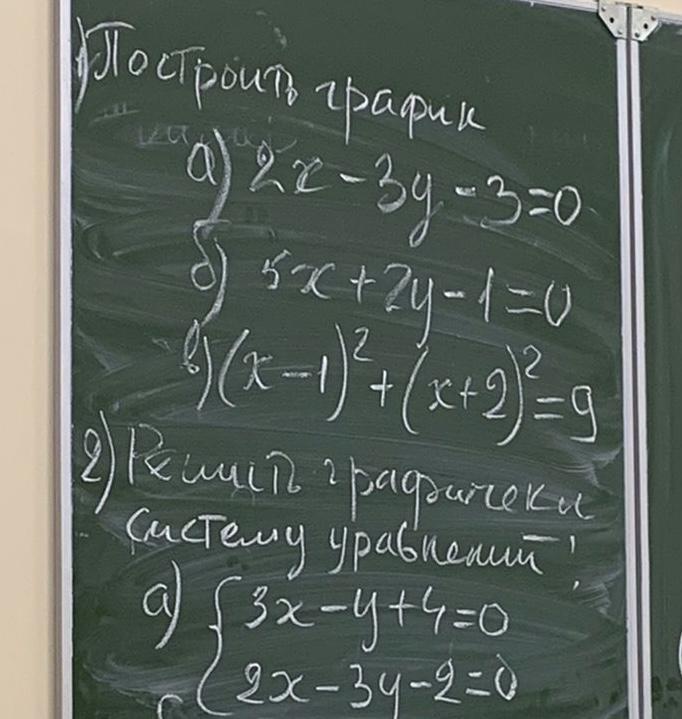 1) Построить график
а) 2x-3y-3=0
б) 5x+2y-1=0
в) (x-1)²+(x+2)²=9
2) Решить графически
систему уравнений:
а) { 3x-y+4=0
2x-3y-2=0